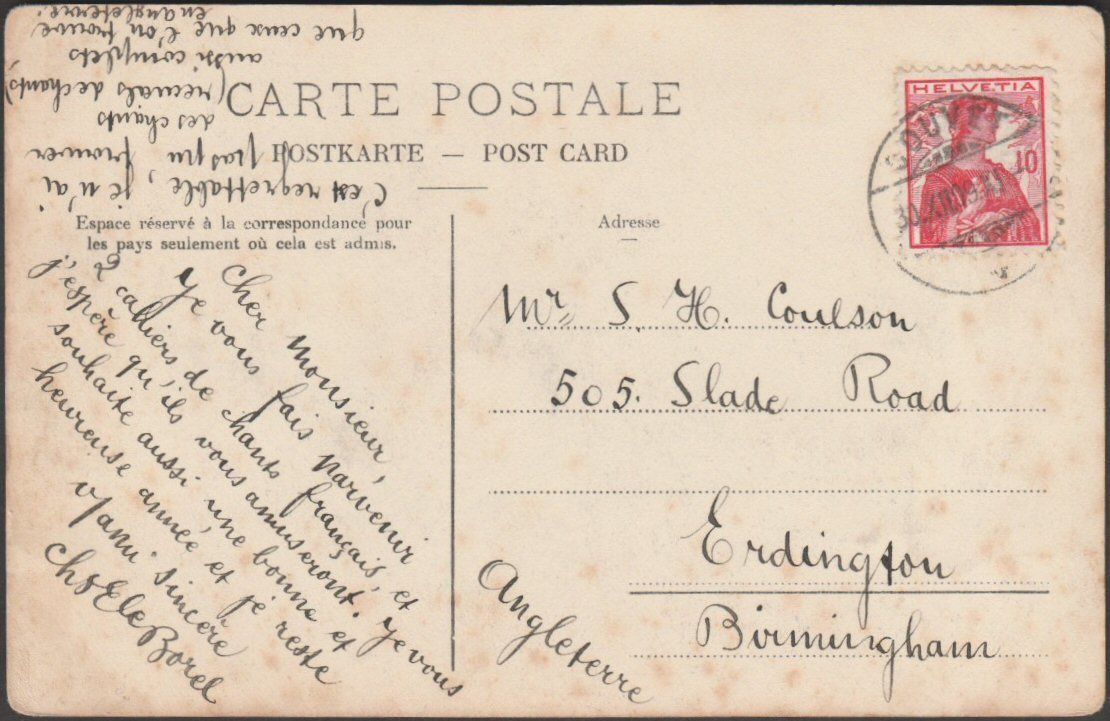 CARTE POSTALE
POSTKARTE — POST CARD
Espace réservé à la correspondance pour
les pays seulement où cela est admis.
Adresse
HELVETIA
10
COUVET
Cher Monsieur,
Je vous fais parvenir
2 cahiers de chants français, et
j'espère qu'ils vous amuseront. Je vous
souhaite aussi une bonne et
heureuse année et je reste
v/ami sincère
Borel
C'est regrettable, je n'ai
pas pu trouver
des chants
(recueils de chants)
aussi complets
que ceux que l'on trouve
en angleterre.
Mr S. H. Coulson
505. Slade Road
Erdington
Birmingham
Angleterre